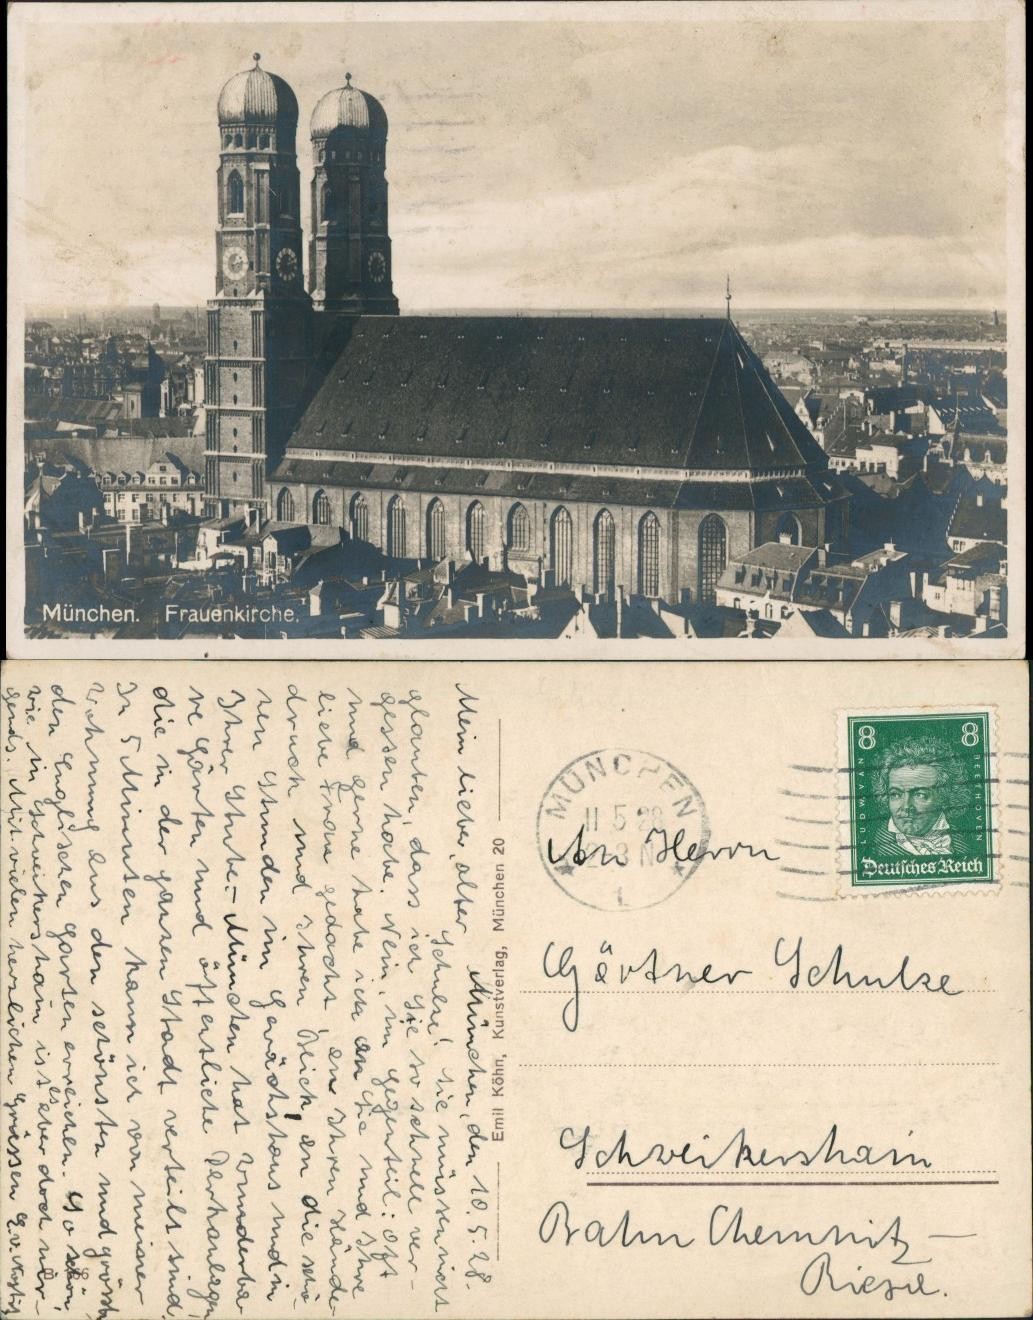 München. Frauenkirche.
München, den 10.5.28.
Mein lieber, alter Schulze! Sie müssen nicht
glauben, dass ich Sie so schnell ver-
gessen habe. Nein, im Gegenteil: Oft
und gerne habe ich an Sie und Ihre
liebe Frau gedacht, an Ihren Hände-
druck und Ihren Teich, an die schö-
nen Stunden im Gewächshaus und in
Ihrer Stube. – München hat wunderba-
re Gärten und öffentliche Parkanlagen
die in der ganzen Stadt verteilt sind.
In 5 Minuten kann ich von meiner
Wohnung aus den schönsten und gröss
den Englischen Garten erreichen. So schön,
wie in Schweikershain ist es aber doch nir-
gends. Mit vielen herzlichen Grüssen E. v.
B 66
Emil Köhn, Kunstverlag, München 20
MÜNCHEN
11 5 28
2-3 N
1
8 8
LUDW. VAN BEETHOVEN
Deutsches Reich
An Herrn
Gärtner Schulze
Schweikershain
Bahn Chemnitz –
Riesa.